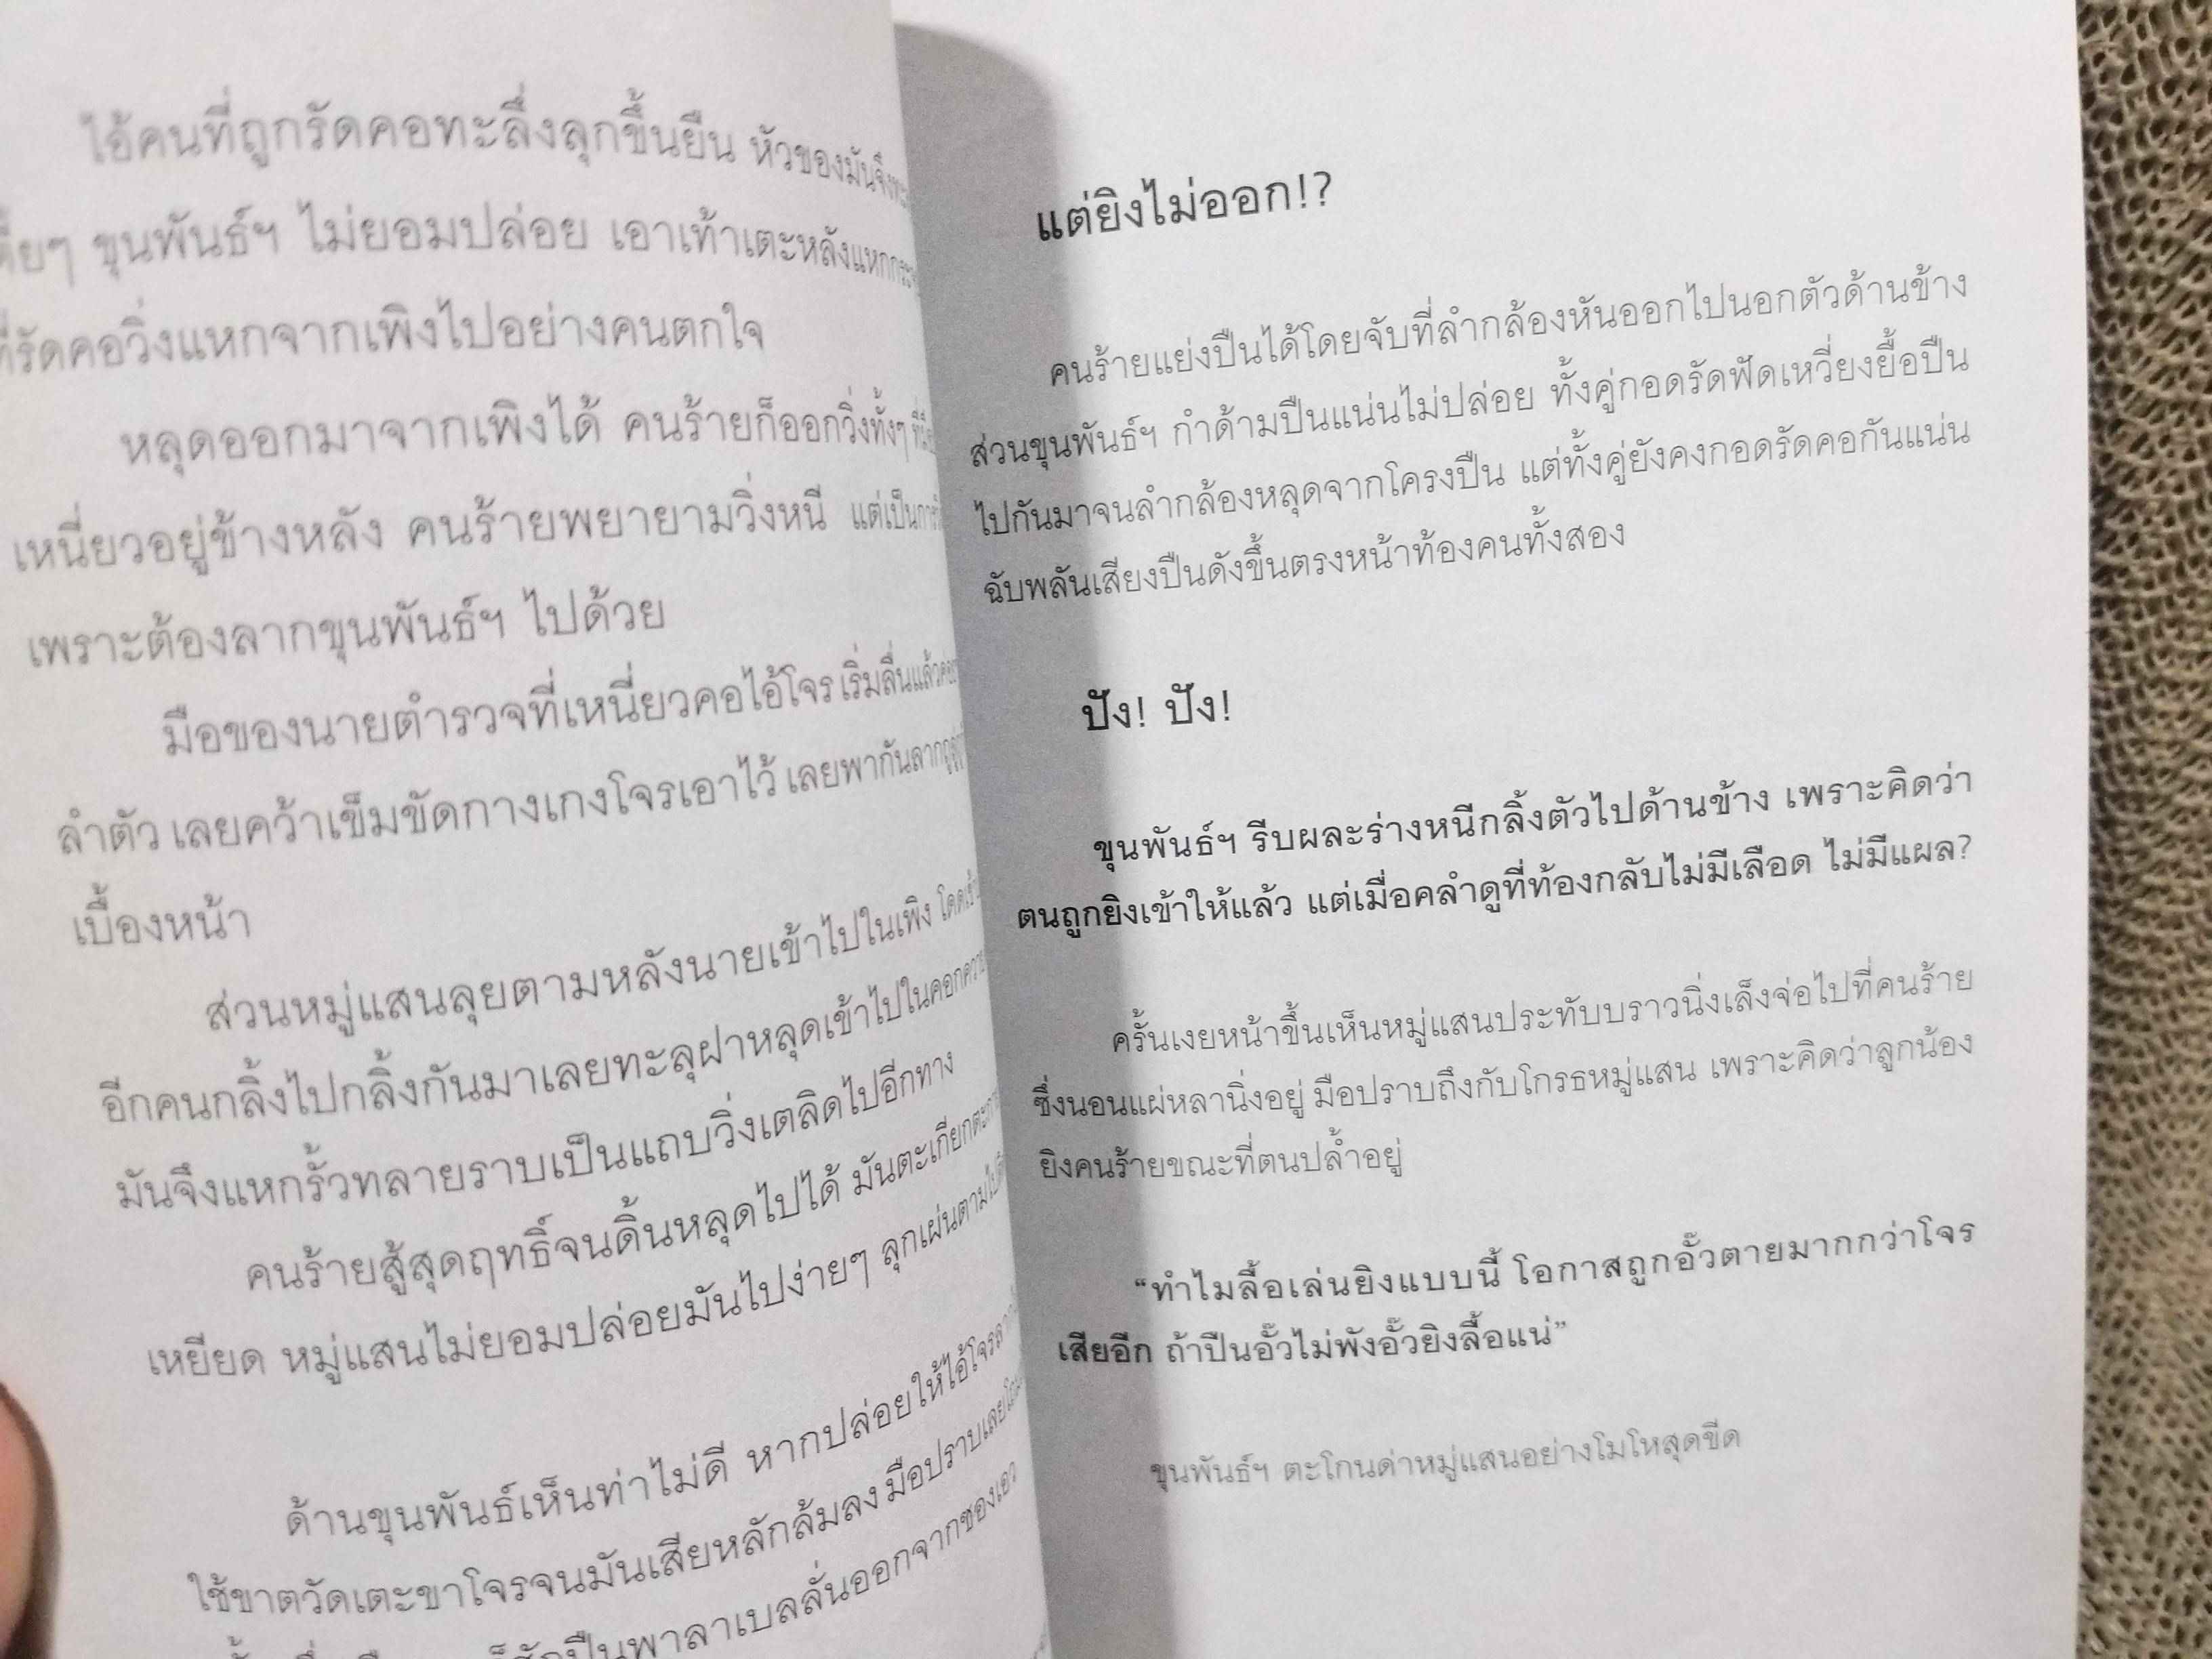 ไอ้คนที่ถูกรัดคอทะลึ่งลุกขึ้นยืน หัวของมันจึง
ขุนพันธ์ฯ ไม่ยอมปล่อย เอาเท้าเตะหลังแหกกระ
ที่รัดคอวิ่งแหกจากเพิงไปอย่างคนตกใจ
หลุดออกมาจากเพิงได้ คนร้ายก็ออกวิ่งทั้งๆ ที่
เหนี่ยวอยู่ข้างหลัง คนร้ายพยายามวิ่งหนี แต่เป็น
เพราะต้องลากขุนพันธ์ฯ ไปด้วย
มือของนายตำรวจที่เหนี่ยวคอไอ้โจร เริ่มลื่นแล้ว
ลำตัว เลยคว้าเข็มขัดกางเกงโจรเอาไว้ เลยพากันลาก
เบื้องหน้า
ส่วนหมู่แสนลุยตามหลังนายเข้าไปในเพิง โดด
อีกคนกลิ้งไปกลิ้งกันมาเลยทะลุฝาหลุดเข้าไปในคอก
มันจึงแหกรั้วทลายราบเป็นแถบวิ่งเตลิดไปอีกทาง
คนร้ายสู้สุดฤทธิ์จนดิ้นหลุดไปได้ มันตะเกียก
เหยียด หมู่แสนไม่ยอมปล่อยมันไปง่ายๆ ลุกเผ่นตามไป
ด้านขุนพันธ์เห็นท่าไม่ดี หากปล่อยให้ไอ้โจร
ใช้ขาตวัดเตะขาโจรจนมันเสียหลักล้มลง มือปราบเลย
ปืนพาลาเบลลั่นออกจากซองเอว
แต่ยิงไม่ออก!?
คนร้ายแย่งปืนได้โดยจับที่ลำกล้องหันออกไปนอกตัวด้านข้าง
ส่วนขุนพันธ์ฯ กำด้ามปืนแน่นไม่ปล่อย ทั้งคู่กอดรัดฟัดเหวี่ยงยื้อปืน
ไปกันมาจนลำกล้องหลุดจากโครงปืน แต่ทั้งคู่ยังคงกอดรัดคอกันแน่น
ฉับพลันเสียงปืนดังขึ้นตรงหน้าท้องคนทั้งสอง
ปัง! ปัง!
ขุนพันธ์ฯ รีบผละร่างหนีกลิ้งตัวไปด้านข้าง เพราะคิดว่า
ตนถูกยิงเข้าให้แล้ว แต่เมื่อคลำดูที่ท้องกลับไม่มีเลือด ไม่มีแผล?
ครั้นเงยหน้าขึ้นเห็นหมู่แสนประทับบราวนิ่งเล็งจ่อไปที่คนร้าย
ซึ่งนอนแผ่หลานิ่งอยู่ มือปราบถึงกับโกรธหมู่แสน เพราะคิดว่าลูกน้อง
ยิงคนร้ายขณะที่ตนปล้ำอยู่
“ทำไมลื้อเล่นยิงแบบนี้ โอกาสถูกอั๊วตายมากกว่าโจร
เสียอีก ถ้าปืนอั๊วไม่พังอั๊วยิงลื้อแน่”
ขุนพันธ์ฯ ตะโกนด่าหมู่แสนอย่างโมโหสุดขีด